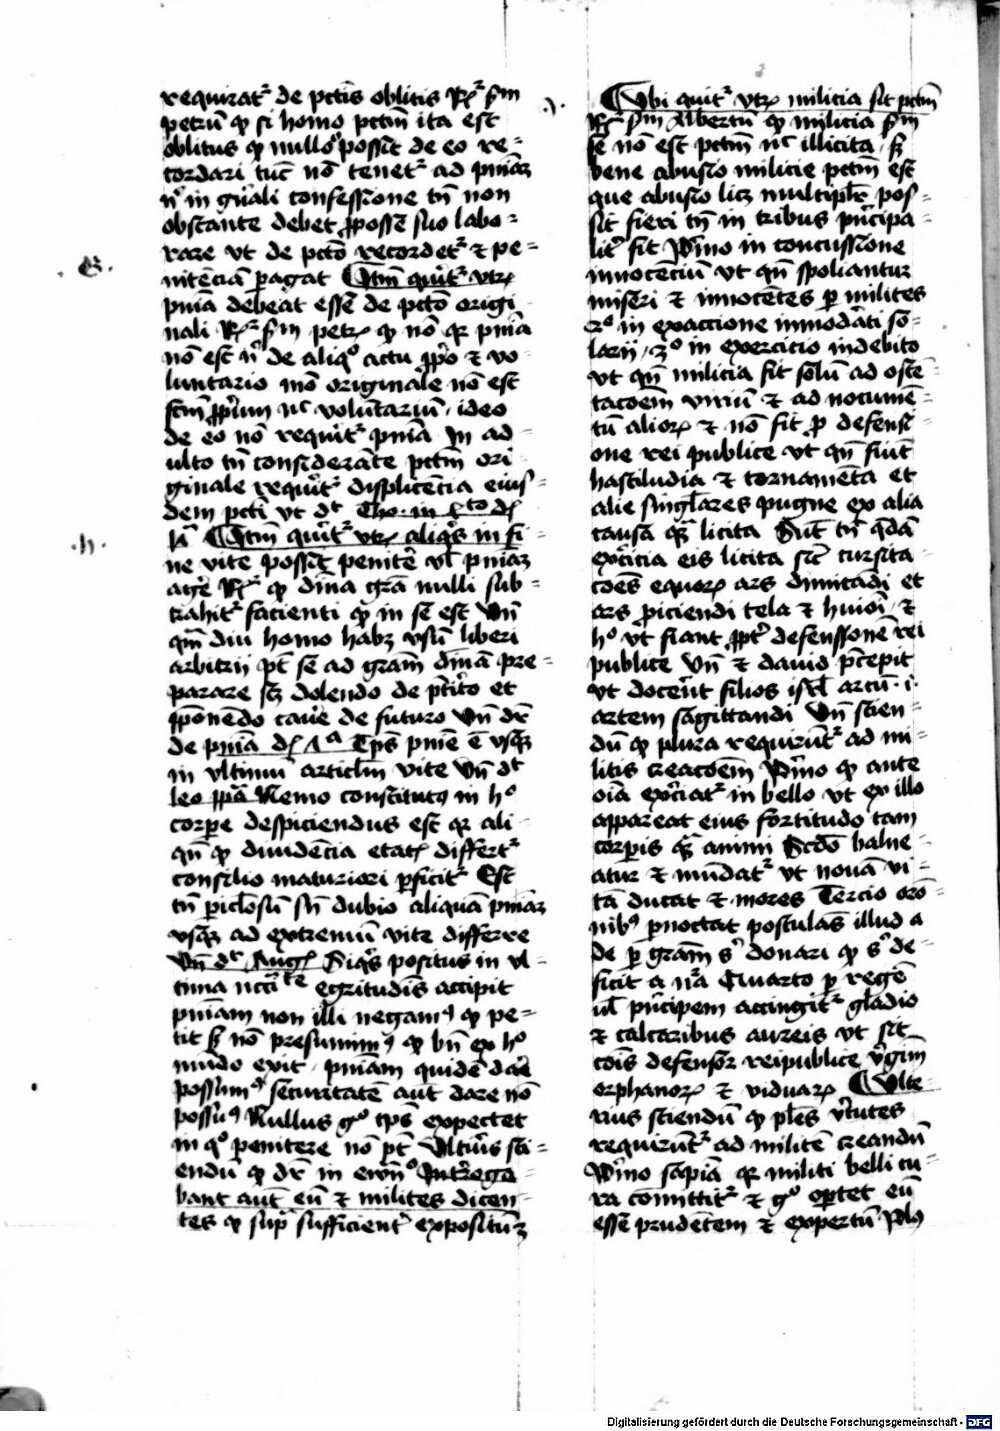 requirat^r de pctis oblitis R^r s̄m
petrū qꝫ si homo pctm̄ ita est
oblitus qꝫ nullo^o possit de eo re-
cordari tūc nō tenet^r ad pn̄iaꝫ
n^i in gn̄ali confessione tn̄ non
obstante debet ꝓposse suo labo-
rare vt de pctō recordet^r ⁊ pe-
nitēciā pagat Itm̄ querit^r vtꝝ
.G.
pn̄ia debeat esse de pctō origi
nali R^r s̄m petꝝ qꝫ nō qꝛ pn̄ia
nō est n^i de aliq^o actu ꝓp̄o ⁊ vo-
luntario mō originale nō est
ꝓp̄rium n^c volūtariū ideo
de eo nō requirit^r pn̄ia In ad-
ulto tn̄ considerāte pctm̄ ori-
ginale requirit^r displicētia eius-
dem pcti vt d^t Tho. in
Itm̄ querit^r vtꝝ aliq^s in fi-
.h.
ne vite possit penitē vl̄ pn̄iaꝫ
agere R^r qꝫ dīna grā nulli sub-
trahit^r facienti qꝫ in se est Vn̄
qm̄ diu homo habꝫ vsū liberi
arbitrii pt̄ se ad gram̄ dīnā pre-
parare sꝫ dolendo de p̄tito et
ꝓponēdo cavē de futuro Vn̄ dr̄
de pn̄ia d. 1^a Tp̄s pn̄ie ē vsqꝫ
in vltimū articlm̄ vite Vn̄ d^t
leo pp̄a Nemo constitutꝰ in h^o
corpe despiciendus est qꝛ ali-
qn̄ qꝫ diuidēcia etatꝭ differt^r
consilio maturiori pficit^r Est
tn̄ piclosū sn̄ dubio aliquā pn̄iaꝫ
vsqꝫ ad extremū vite differre
Vn̄ d^t Augꝭ Siq^s positus in vl-
tima nccitate egritudīs accipit
pn̄iam non illi negamꝰ qꝫ pe-
tit sꝫ nō presumimꝰ qꝫ bn̄ ex h^o
mūdo exit pn̄iam quidē dare
possumꝰ securitatē aūt dare nō
possumꝰ Nullus g^o tp̄s expectet
in q^o penitere nō pt̄ Vltius sci-
endū qꝫ dr̄ in ewn̄^o Intrega
bant aūt eū ⁊ milites dicen-
tes qꝫ supͣ sufficient^r expositū
Ubi querit^r vtꝝ milicia sit pctm̄
R^r s̄m Albertū qꝫ milicia s̄m
se nō est pctm̄ n^c illicita sꝫ
bene abusio milicie pctm̄ est
que abusio licꝫ multiplr̄ pos-
sit fieri tn̄ in tribus pn̄cipa-
lit^r fit Primo in concussione
innocēciū vt qn̄ spoliantur
miseri ⁊ innocētes p milites
2^o in exaccione inmodāti so-
larii 3^o in exercicio indebito
vt qn̄ milicia fit solū ad ostē-
tacōem viriū ⁊ ad nocumē-
tū alioꝝ ⁊ nō fit ꝓ defensi-
one rei publice vt qn̄ fiūt
hastiludia ⁊ tornamēta et
alie singlares pugne ex alia
causa q̄ꝫ licita Sūt tn̄ q̄dā
exercitia eis licita sic cursita-
cōes equoꝝ ars dimicādi et
ars piciendi tela ⁊ huiōi ⁊
h^o vt fiant ꝓpt^r defenssionē rei
publice Vn̄ ⁊ dauid p̄cepit
vt docerēt filios isrl̄ arcū .i.
artem sagittandi Vn̄ scien-
dū qꝫ plura requirūt^r ad mi-
litis creacōem Primo qꝫ ante
oīa exerciat^r in bello vt ex illo
appareat eius fortitudo tam
corpis q̄ꝫ animi Scdō balne-
atur ⁊ mūdat^r vt nouā vi-
tā ducat ⁊ mores Tercio orō-
nibꝰ pnoctat postulās illud a
deo p gram̄ s^i donari qꝫ s^i de-
ficit a nr̄a Quarto p regē
vl̄ pn̄cipem accingit^r gladio
⁊ calcaribus aureis vt sit
cōis defensor reipublice vgīm
orphanoꝝ ⁊ viduaꝝ Ulte-
rius sciendū qꝫ pl̄es v̄tutes
requirūt^r ad militē creandū
Primo sapiā qꝛ militi belli cu-
ra cōmittit^r ⁊ g^o oportet eū
esse prudētem ⁊ expertū
Digitalisierung gefördert durch die Deutsche Forschungsgemeinschaft - DFG